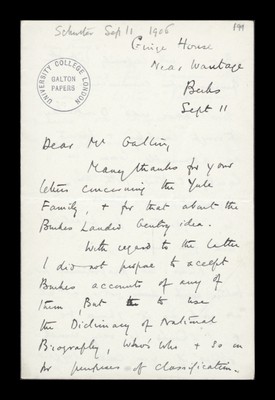 Schuster Sep 11 1906
199
UNIVERSITY COLLEGE LONDON
GALTON
PAPERS
Ginge House
Near Wantage
Berks
Sept 11
Dear Mr Galton
Many thanks for your
letters concerning the Yule
Family, & for that about the
Burkes Landed Gentry idea.
With regard to the latter
I did not propose to accept
Burkes accounts of any of
them, But to use
the Dictionary of National
Biography, Who's Who & so on
for purposes of classification.